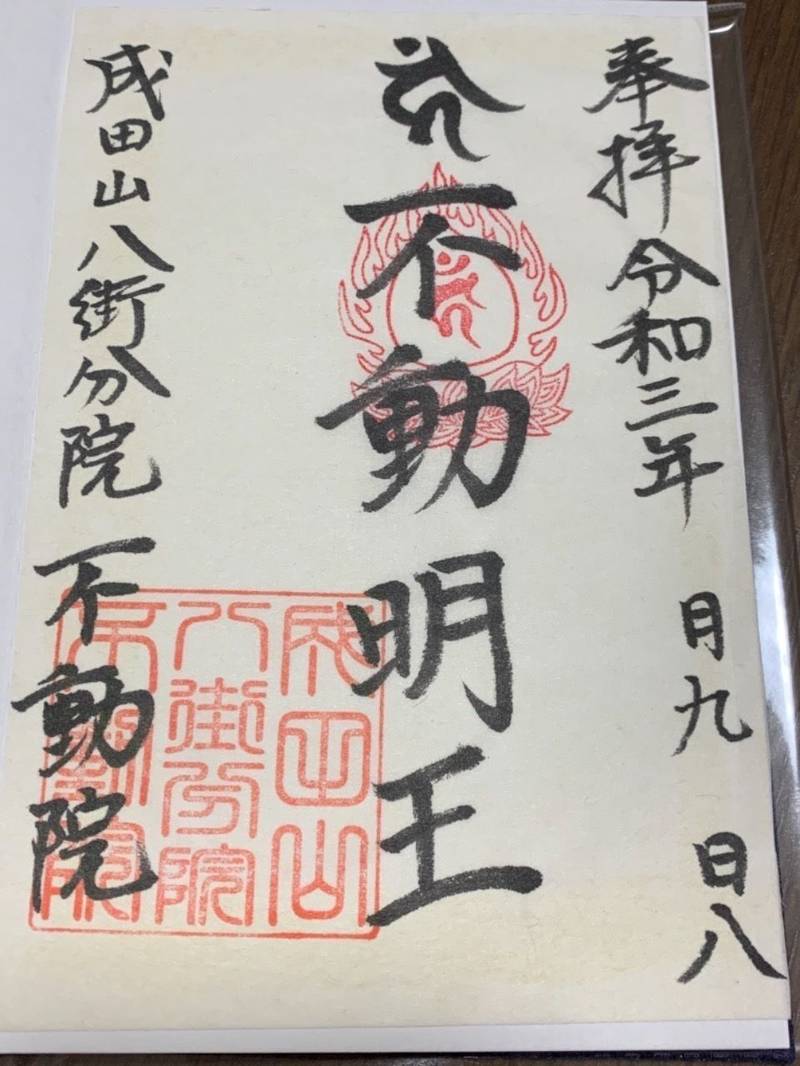 奉拝 令和三年 月九 日八
不動明王
成田山八街分院 不動院
成田山
八街分院
不動院